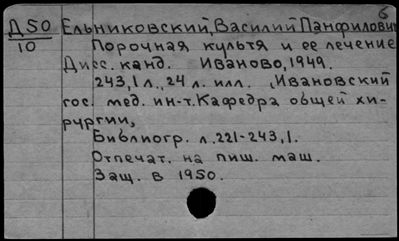 6
Д50 Ельниковский, Василий Панфилович
10 Порочная культя и ее лечение
Дисс. канд. Иваново, 1949.
243,1 л., 24 л. илл. , Ивановский
гос. мед. ин-т. Кафедра общей хи-
рургии,
Библиогр. л. 221-243,1.
Отпечат. на пиш. маш.
Защ. в 1950.